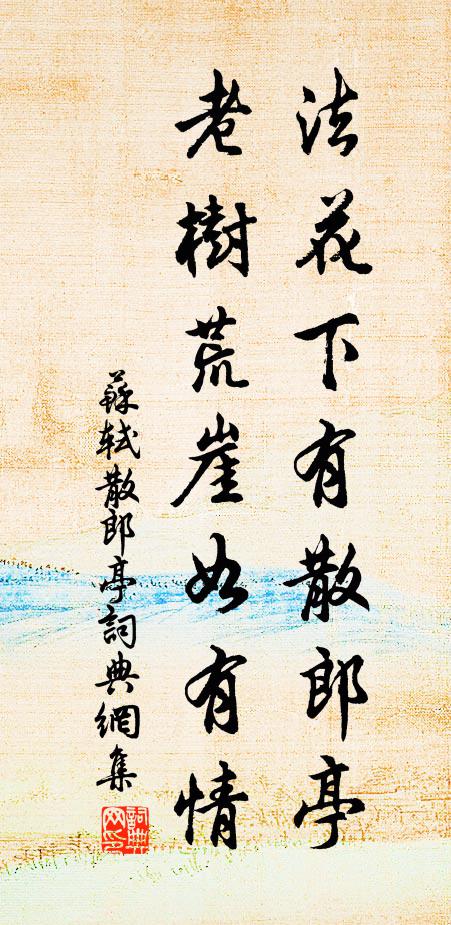 法花下有散郎亭
老樹荒崖如有情
蘇軾散郎亭詞典網集
詞典网印